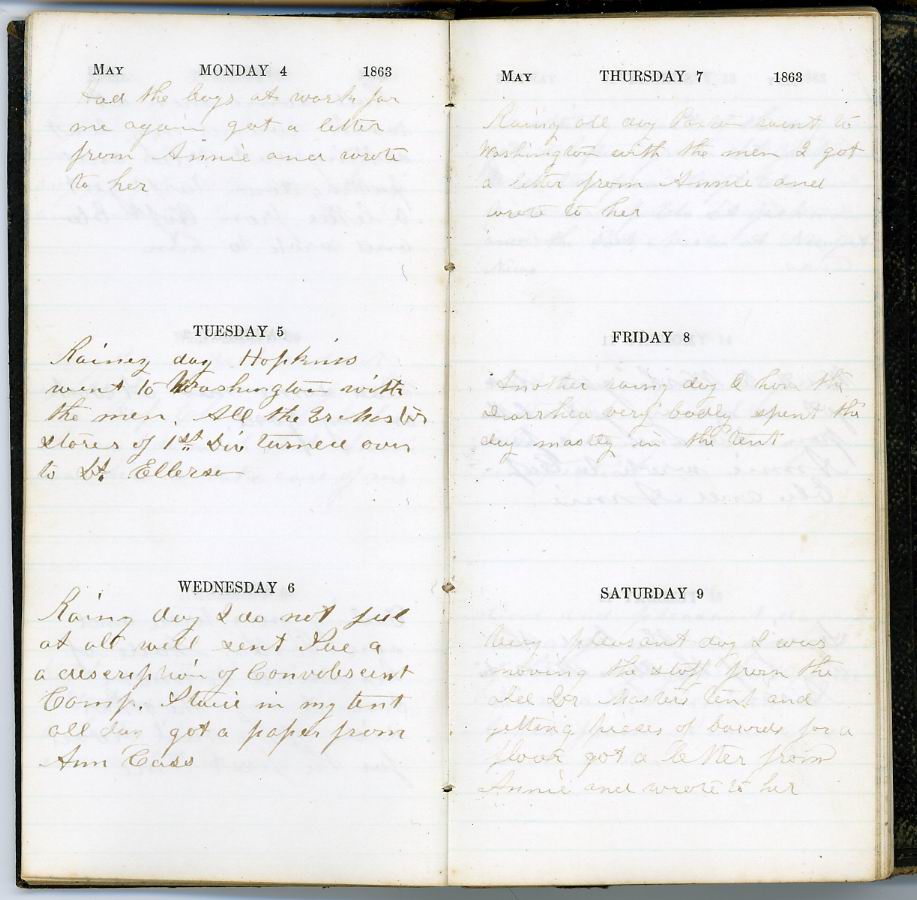 May MONDAY 4 1863
Had the boys at work for
me again got a letter
from Annie and wrote
to her
TUESDAY 5
Rainey day Hopkins
went to Washington with
the men. All the
stores of 1st Div turned over
to Lt. Ellerson
WEDNESDAY 6
Rainy day I do not feel
at all well sent a
a description of Convolescent
Camp. I laid in my tent
all day got a paper from
Ann Cass
May THURSDAY 7 1863
Rainy all day went to
Washington with the men I got
a letter from Annie and
wrote to her
FRIDAY 8
Another rainy day I have the
diarrhea very badly spent the
day mostly in the tent
SATURDAY 9
Very pleasant day I was
moving the stuff from the
old Qr Masters tent and
getting pieces of boards for a
floor got a letter from
Annie and wrote to her